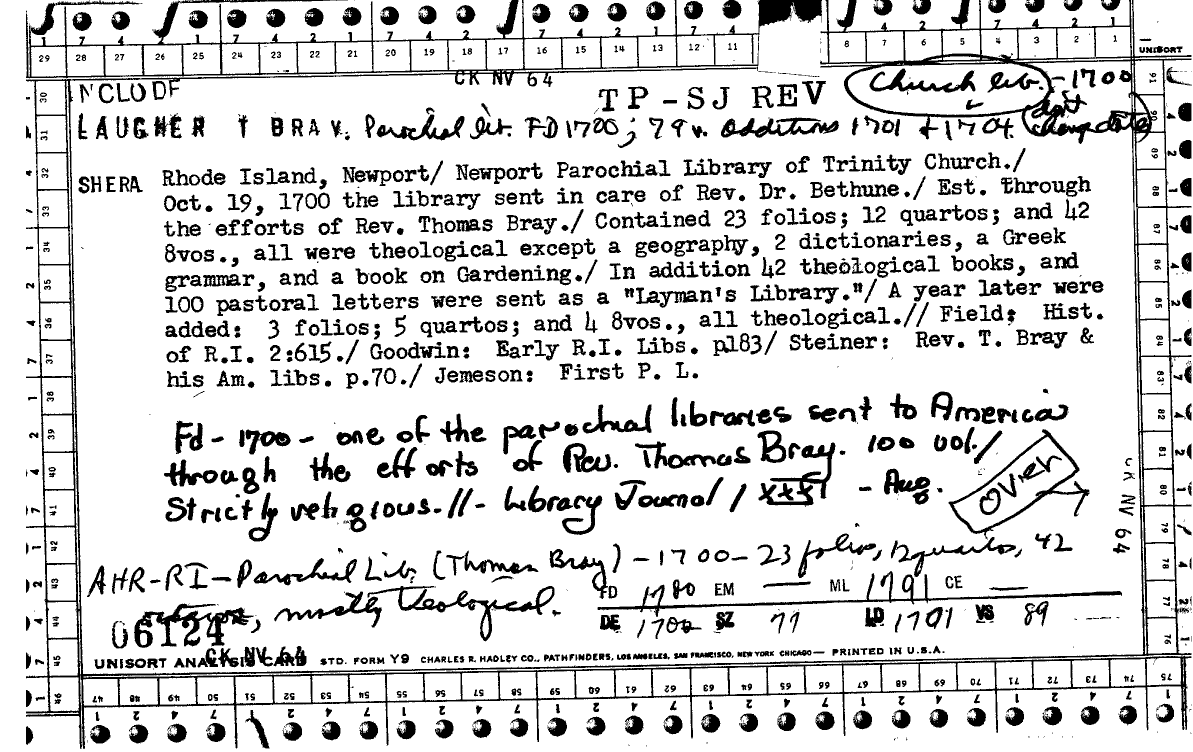 29 28 27 26 25 24 23 22 21 20 19 18 17 16 15 14 13 12 11 8 7 6 5 4 3 2 1
UNISORT
CK NV 64
NCLODF
TP-SJ REV
Church lib. - 1700
don't change date
LAUGHER T BRAY. Parochial lib. FD 1700; 79 v. additions 1701 + 1704.
SHERA
Rhode Island, Newport/ Newport Parochial Library of Trinity Church./
Oct. 19, 1700 the library sent in care of Rev. Dr. Bethune./ Est. through
the efforts of Rev. Thomas Bray./ Contained 23 folios; 12 quartos; and 42
8vos., all were theological except a geography, 2 dictionaries, a Greek
grammar, and a book on Gardening./ In addition 42 theological books, and
100 pastoral letters were sent as a "Layman's Library."/ A year later were
added: 3 folios; 5 quartos; and 4 8vos., all theological.// Field: Hist.
of R.I. 2:615./ Goodwin: Early R.I. Libs. p183/ Steiner: Rev. T. Bray &
his Am. libs. p.70./ Jemeson: First P. L.
Fd - 1700 - one of the parochial libraries sent to America
through the efforts of Rev. Thomas Bray. 100 vol./
Strictly religious.//- Library Journal / - Aug.
OVER
CK NV 64
AHR-RI-Parochial Lib. (Thomas Bray) - 1700 - 23 folios, 12 quartos, 42
, mostly theological.
FD 1780 EM — ML 1791 CE —
DE 1702 SZ 77 LD 1701 VS 89
06124
CK NV 64
UNISORT ANALYSIS CARD STD. FORM Y9 CHARLES R. HADLEY CO., PATHFINDERS, LOS ANGELES, SAN FRANCISCO, NEW YORK CHICAGO— PRINTED IN U.S.A.